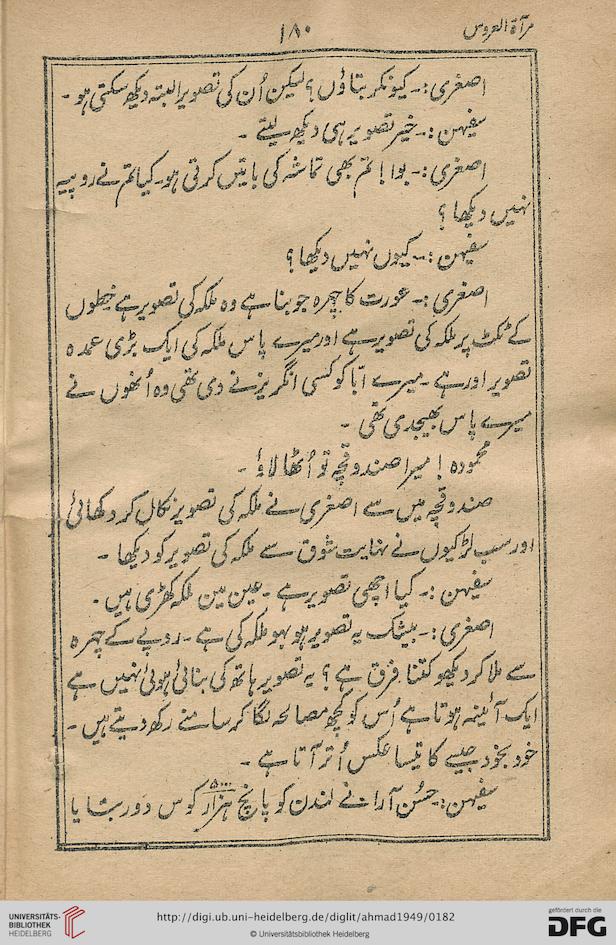 مرآۃ العروس
۱۸۰
اصغری :۔ کیونکر بتاؤں؟ لیکن اُن کی تصویر البتہ دیکھ سکتی ہو۔
سفیہن :۔ خیر تصویر ہی دیکھ لیتے۔
اصغری :۔ بوا! تم بھی تماشہ کی باتیں کرتی ہو۔ کیا تم نے روپیہ
نہیں دیکھا؟
سفیہن :۔ کیوں نہیں دیکھا؟
اصغری :۔ عورت کا چہرہ جو بنا ہے وہ ملکہ کی تصویر ہے خطوں
کے ٹکٹ پر ملکہ کی تصویر ہے اور میرے پاس ملکہ کی ایک بڑی عمدہ
تصویر اور ہے۔ میرے ابّا کو کسی انگریز نے دی تھی وہ اُنھوں نے
میرے پاس بھیجدی تھی۔
محمودہ! میرا صندوقچہ تو اُٹھا لاؤ۔
صندوقچہ میں سے اصغری نے ملکہ کی تصویر نکال کر دکھائی
اور سب لڑکیوں نے نہایت شوق سے ملکہ کی تصویر کو دیکھا۔
سفیہن :۔ کیا اچھی تصویر ہے۔ عین مین ملکہ کھڑی ہیں۔
اصغری :۔ بیشک یہ تصویر ہو بہو ملکہ کی ہے۔ روپے کے چہرہ
سے ملا کر دیکھو کتنا فرق ہے؟ یہ تصویر ہاتھ کی بنائی ہوئی نہیں ہے
ایک آئینہ ہوتا ہے اُس کو کچھ مصالحہ لگا کر سامنے رکھ دیتے ہیں۔
خود بخود جیسے کا تیسا عکس اُتر آتا ہے۔
سفیہن :۔ حسن آرا نے لندن کو پانچ ہزار ۵۰۰۰ کوس دور بتایا
UNIVERSITÄTS-
BIBLIOTHEK
HEIDELBERG
http://digi.ub.uni-heidelberg.de/diglit/ahmad1949/0182
© Universitätsbibliothek Heidelberg
gefördert durch die
DFG